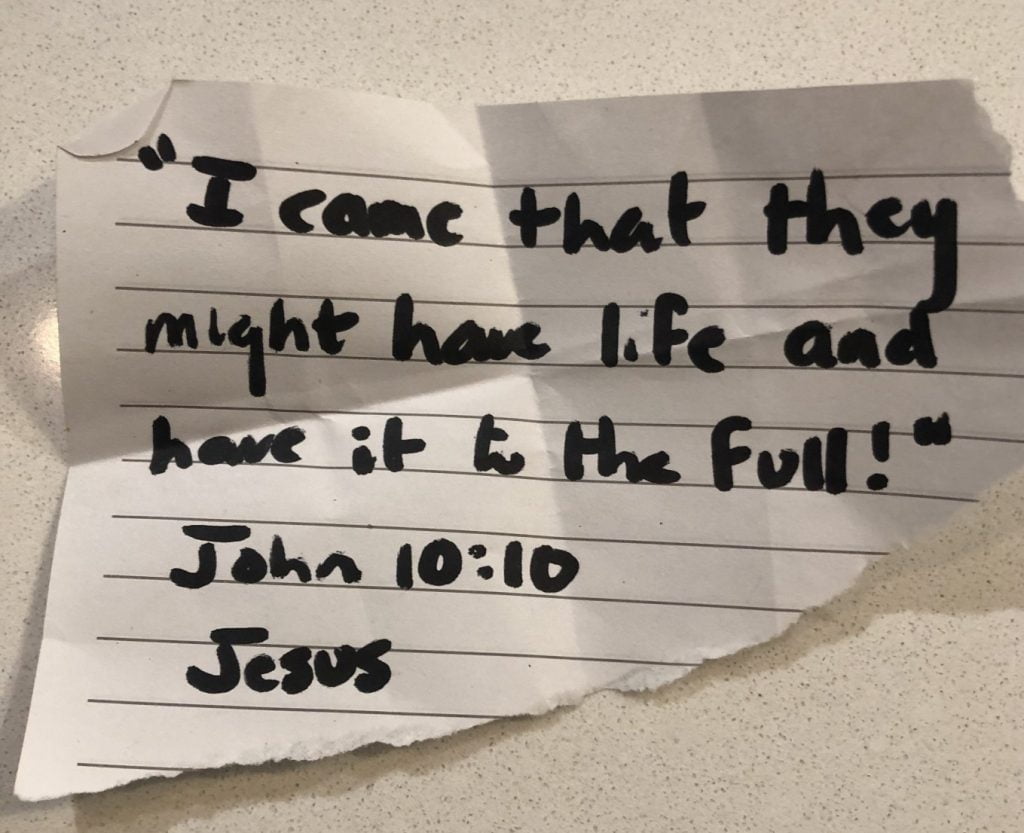 "I came that they
might have life and
have it to the full!"
John 10:10
Jesus